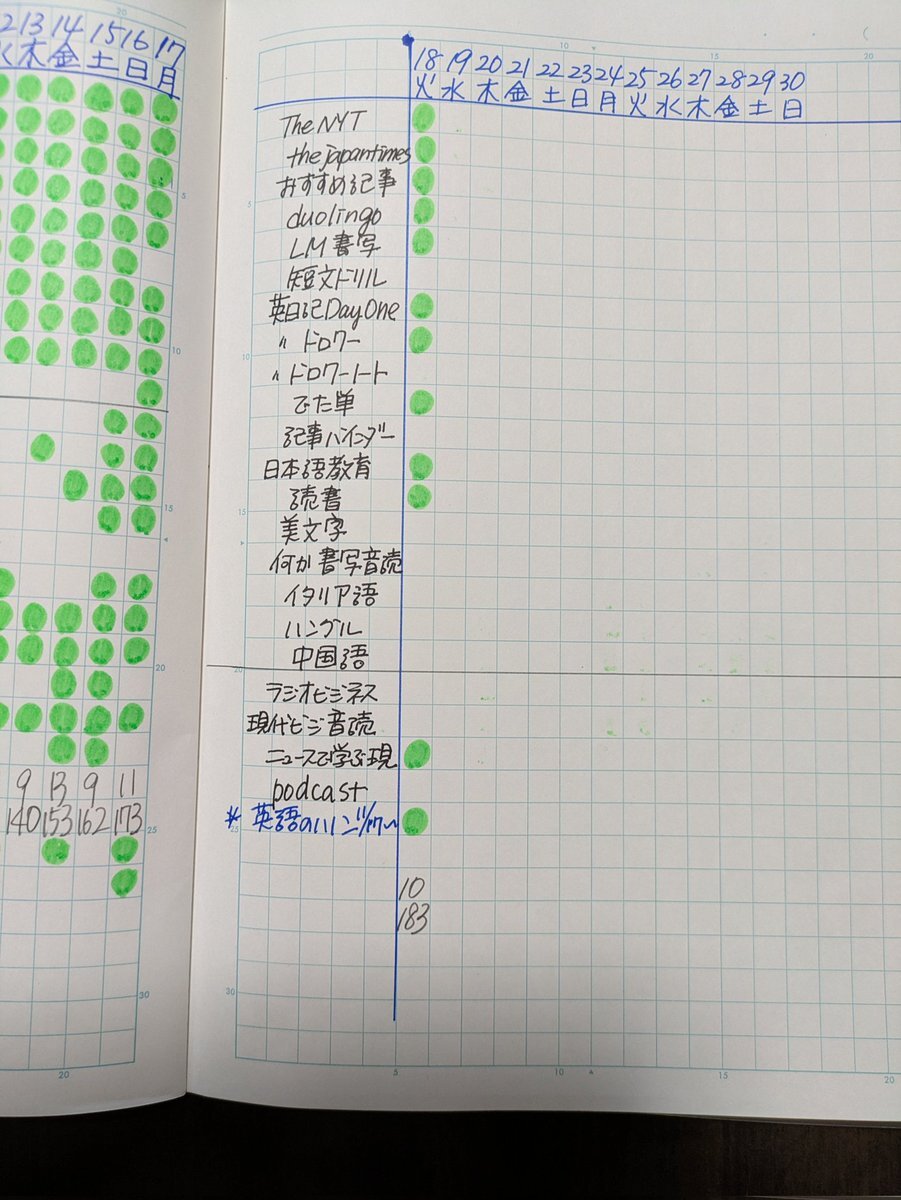 2 13 14 15 16 17
水 木 金 土 日 月
18 19 20 21 22 23 24 25 26 27 28 29 30
火 水 木 金 土 日 月 火 水 木 金 土 日
The NYT
the japantimes
おすすめ記事
duolingo
LM書写
短文ドリル
英日記DayOne
〃 ドロワー
〃 ドロワーノート
でた単
記事バインダー
日本語教育
読書
美文字
何か書写音読
イタリア語
ハングル
中国語
ラジオビジネス
現代ビジ音読
ニュースで学ぶ現
podcast
* 英語のハノン
9 13 9 11
140 153 162 173
10
183
20
5
10
15
20
25
30
20
10
20
5
10
15
20
25
30
5
10
15
20